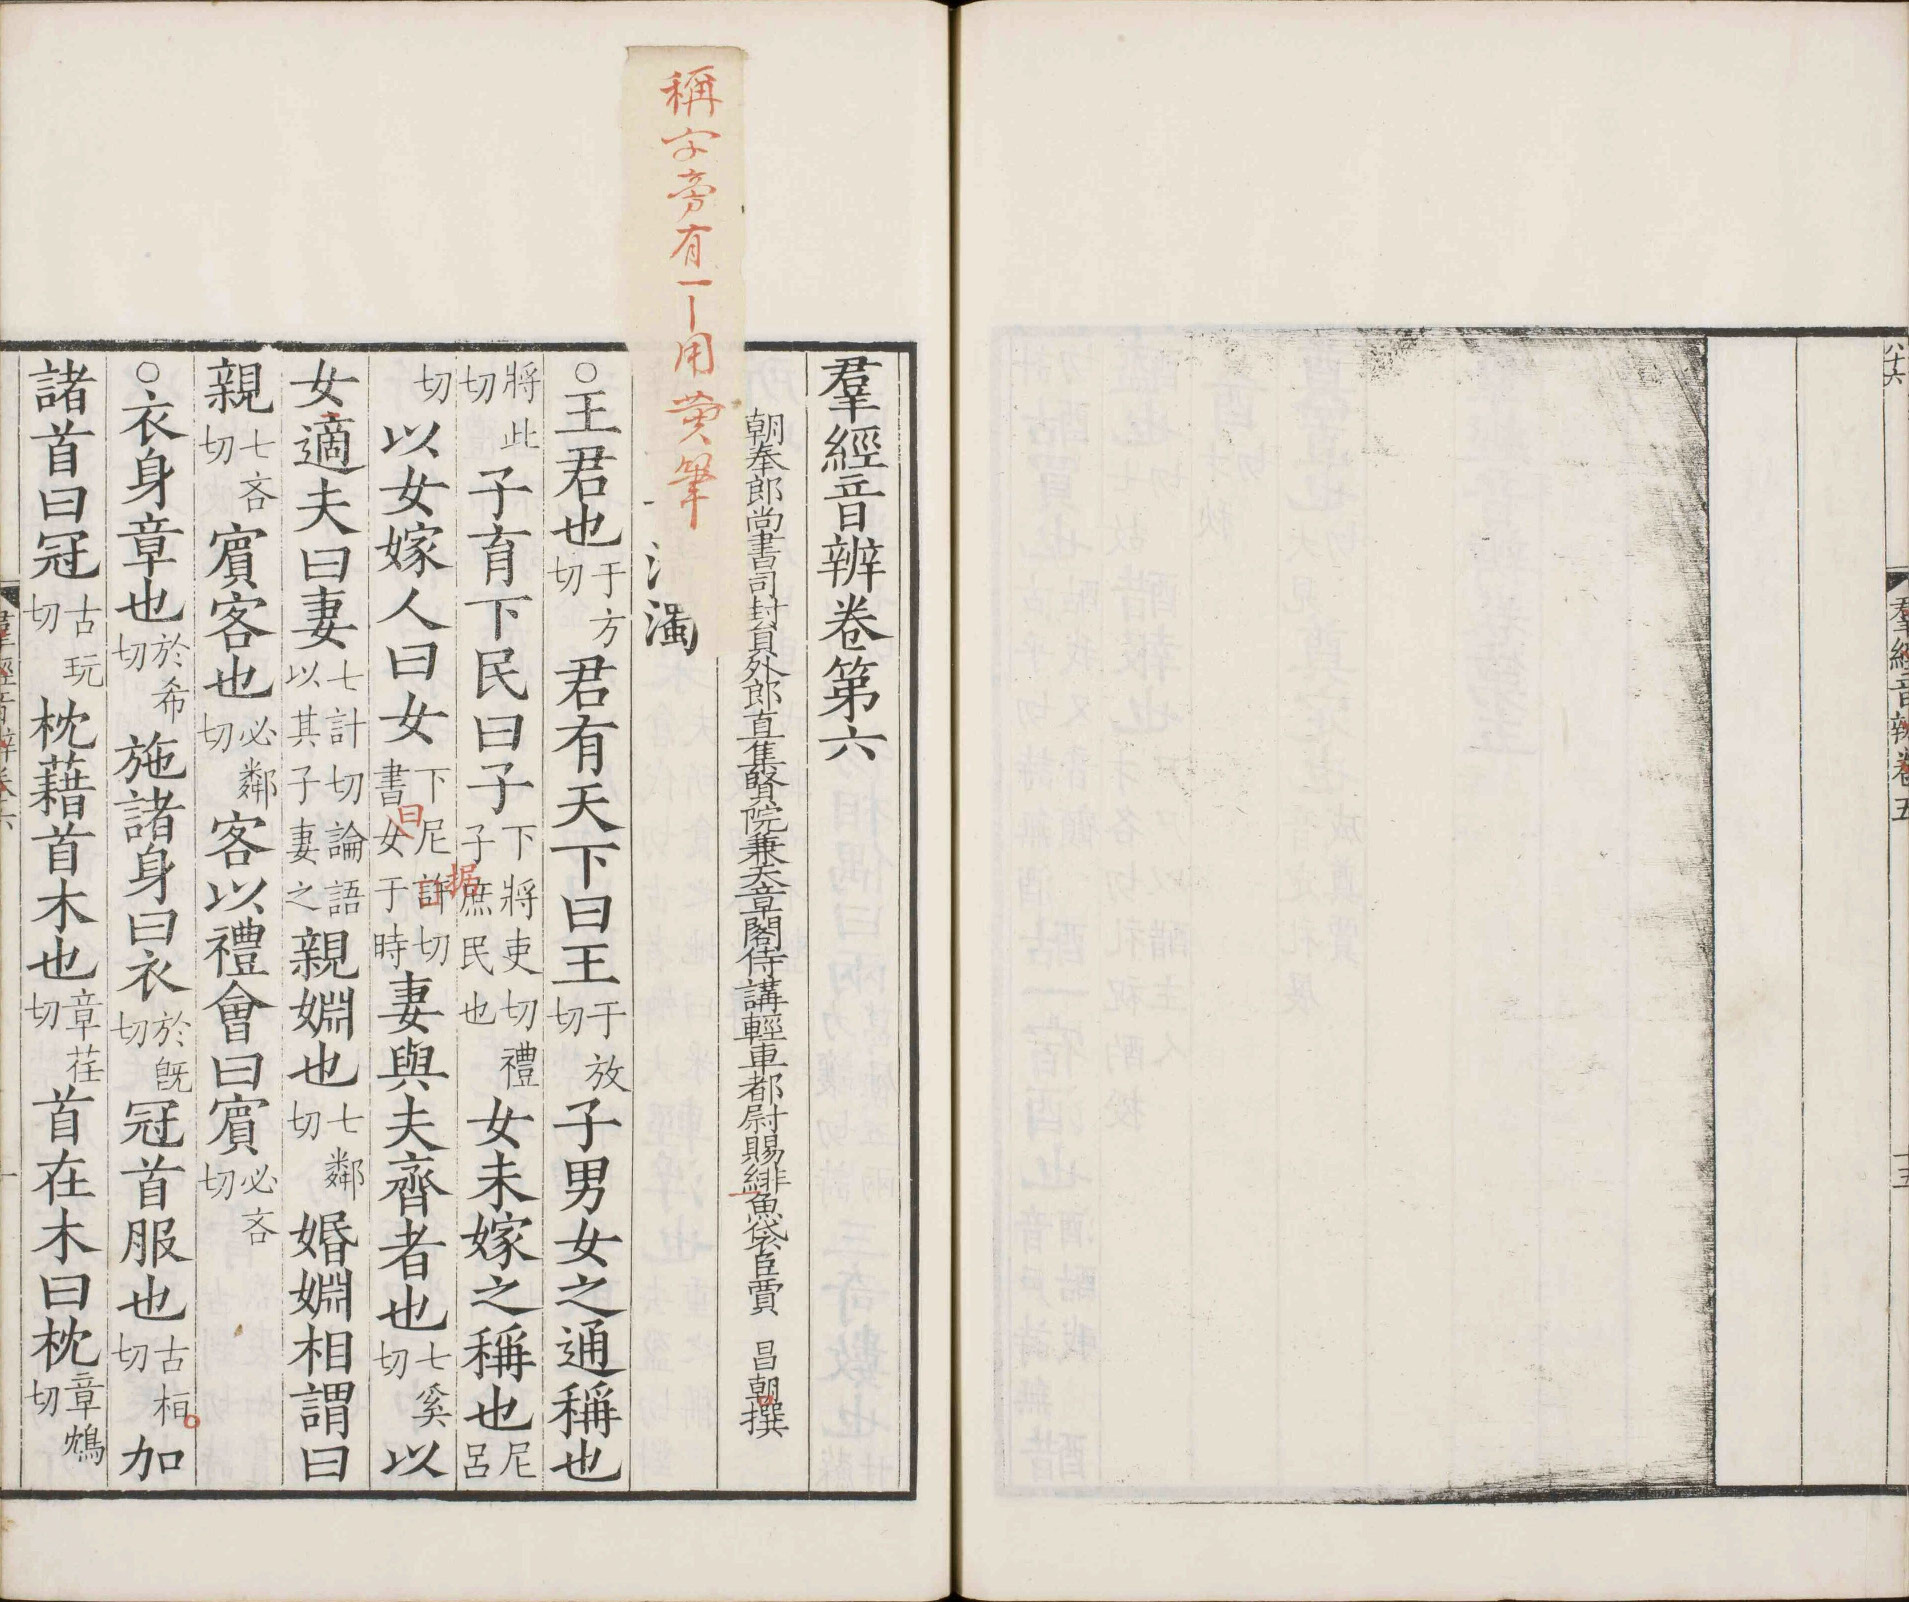 羣經音辨卷五
十五
羣經音辨卷第六
朝奉郎尚書司封員外郎直集賢院兼天章閣侍講輕車都尉賜緋魚袋臣賈 昌朝撰
稱字旁有一丨用黄筆
濁
○王君也于方切君有天下曰王于放切子男女之通稱也
將此切子育下民曰子下將吏切禮子庶民也女未嫁之稱也尼呂
切以女嫁人曰女下尼許切書女于時妻與夫齊者也七奚切以
曰
据
女適夫曰妻七計切論語以其子妻之親婣也七鄰切婚婣相謂曰
親七吝切賓客也必鄰切客以禮會曰賓必吝切
○衣身章也於希切施諸身曰衣於旣切冠首服也古桓切加
諸首曰冠古玩切枕藉首木也章荏切首在木曰枕章鴆切
羣經音辨卷六
一